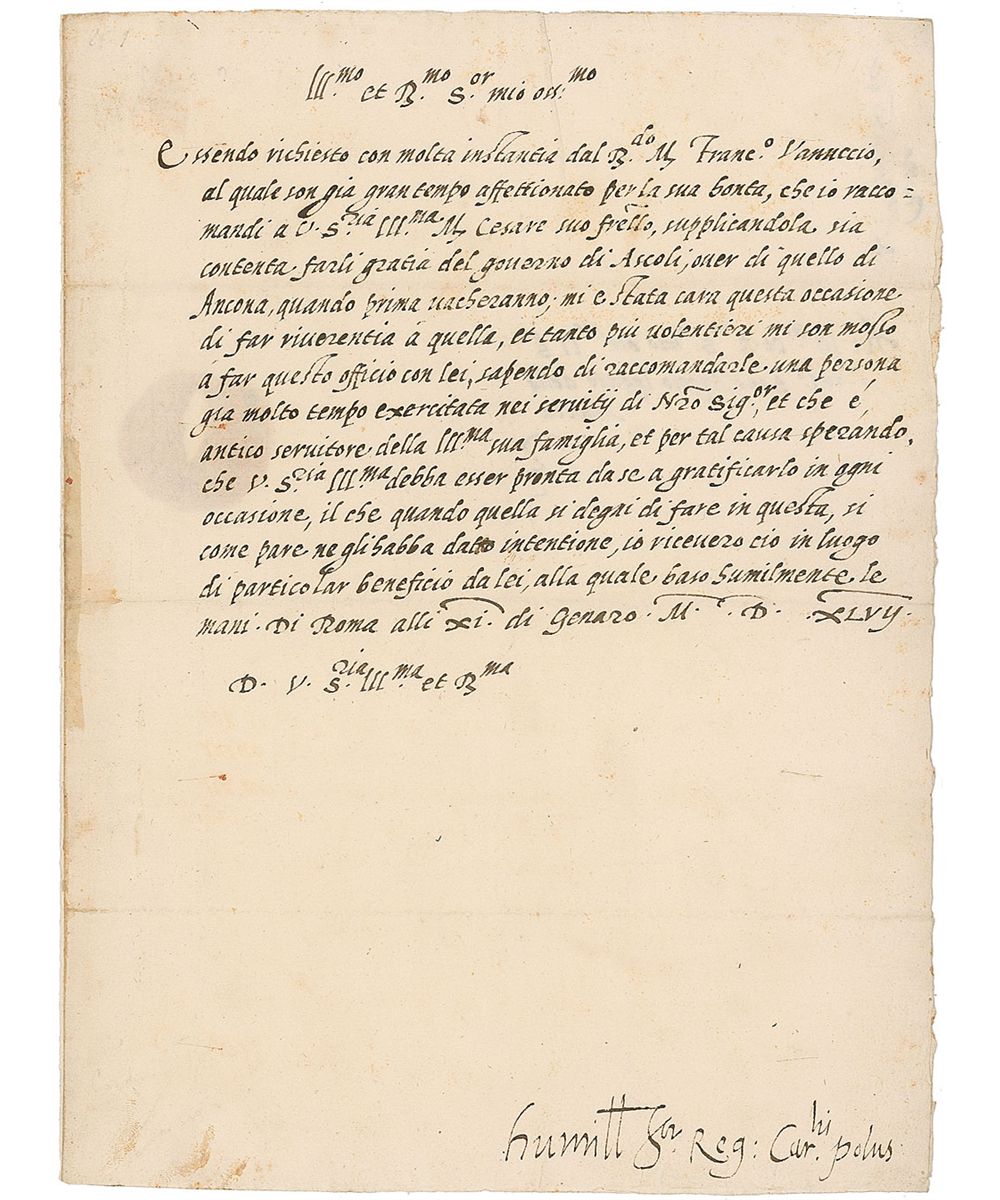 Ill.mo et R.mo S.or mio oss.mo
Essendo richiesto con molta instantia dal R.do M. Franc.o Vanuccio,
al quale son già gran tempo affettionato per la sua bonta, che io racco=
mandi à V. S.ria Ill.ma M. Cesare suo frello, supplicandola sia
contenta farli gratia del governo di Ascoli, over di quello di
Ancona, quando prima vacheranno; mi e stata cara questa occasione
di far riverentia à quella, et tanto più volentieri mi son mosso
à far questo officio con lei, sapendo di raccomandarle una persona
già molto tempo exercitata nei servitij di Nr̃o Sig.or, et che é,
antico servitore della Ill.ma sua famiglia, et per tal causa sperando,
che V. S.ria Ill.ma debba esser pronta da se a gratificarlo in ogni
occasione, il che quando quella si degni di fare in questa, si
come pare ne gli habba datto intentione, io ricevero cio in luogo
di particolar beneficio da lei, alla quale baso humilmente le
mani. Di Roma alli xi. di Genaro. M. D. XLVIJ
D. V. S.ria Ill.ma et R.ma
humill S.or Reg: Car.lis polus